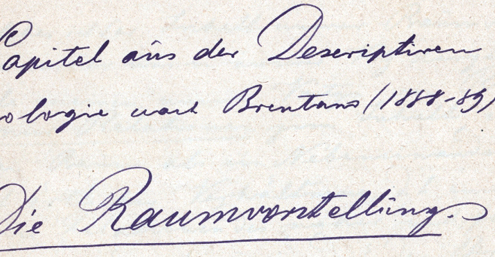 Capitel aus der Descriptiven
ologie nach Brentano (1888-89)
Die Raumvorstellung.